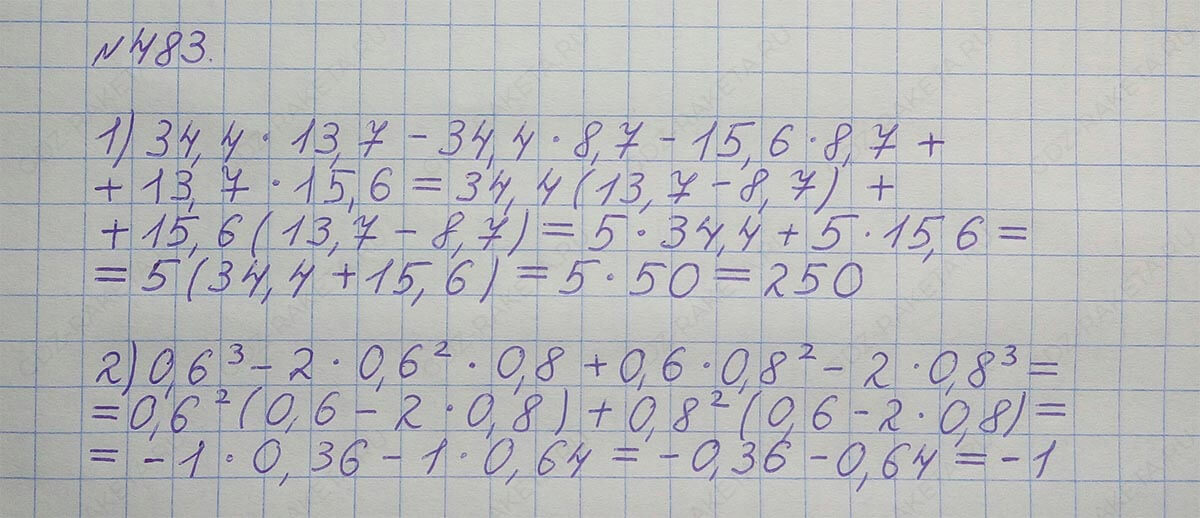 №483.
1) 34,4 · 13,7 - 34,4 · 8,7 - 15,6 · 8,7 +
+ 13,7 · 15,6 = 34,4 (13,7 - 8,7) +
+ 15,6 (13,7 - 8,7) = 5 · 34,4 + 5 · 15,6 =
= 5 (34,4 + 15,6) = 5 · 50 = 250
2) 0,6³ - 2 · 0,6² · 0,8 + 0,6 · 0,8² - 2 · 0,8³ =
= 0,6² (0,6 - 2 · 0,8) + 0,8² (0,6 - 2 · 0,8) =
= -1 · 0,36 - 1 · 0,64 = -0,36 - 0,64 = -1